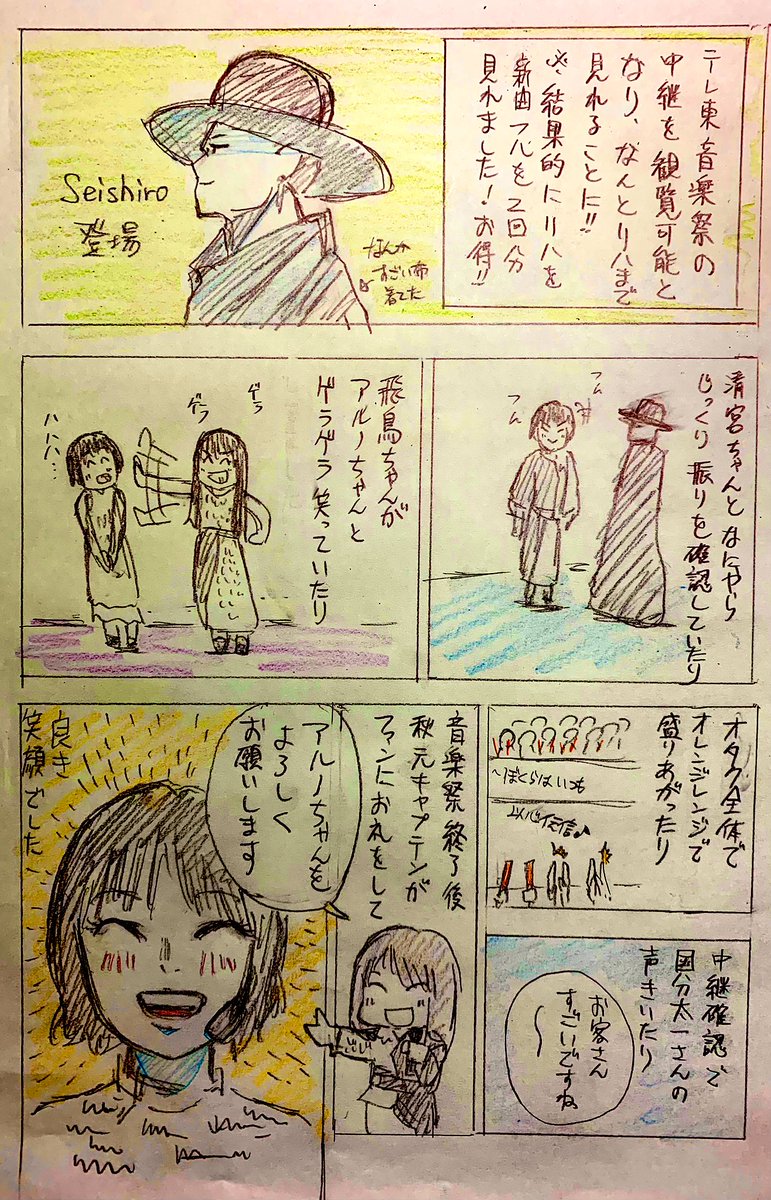 テレ東音楽祭の
中継を観覧可能と
なり、なんとリハまで
見れることに!!
※結果的にリハを
新曲フルを2回分
見れました!お得!!
Seishiro
登場
なんか
すごい布
着てた
清宮ちゃんとなにやら
じっくり振りを確認していたり
フム
フム
飛鳥ちゃんが
アルノちゃんと
ゲラゲラ笑っていたり
ゲラ
ゲラ
ハハハ…
オタク全体で
オレンジレンジで
盛りあがったり
～ぼくらはいつも
以心伝信♪
中継確認で
国分太一さんの
声きいたり
お客さん
すごいですね
〜
音楽祭終了後
秋元キャプテンが
ファンにお礼をして
アルノちゃんを
よろしく
お願いします
良き
笑顔でした